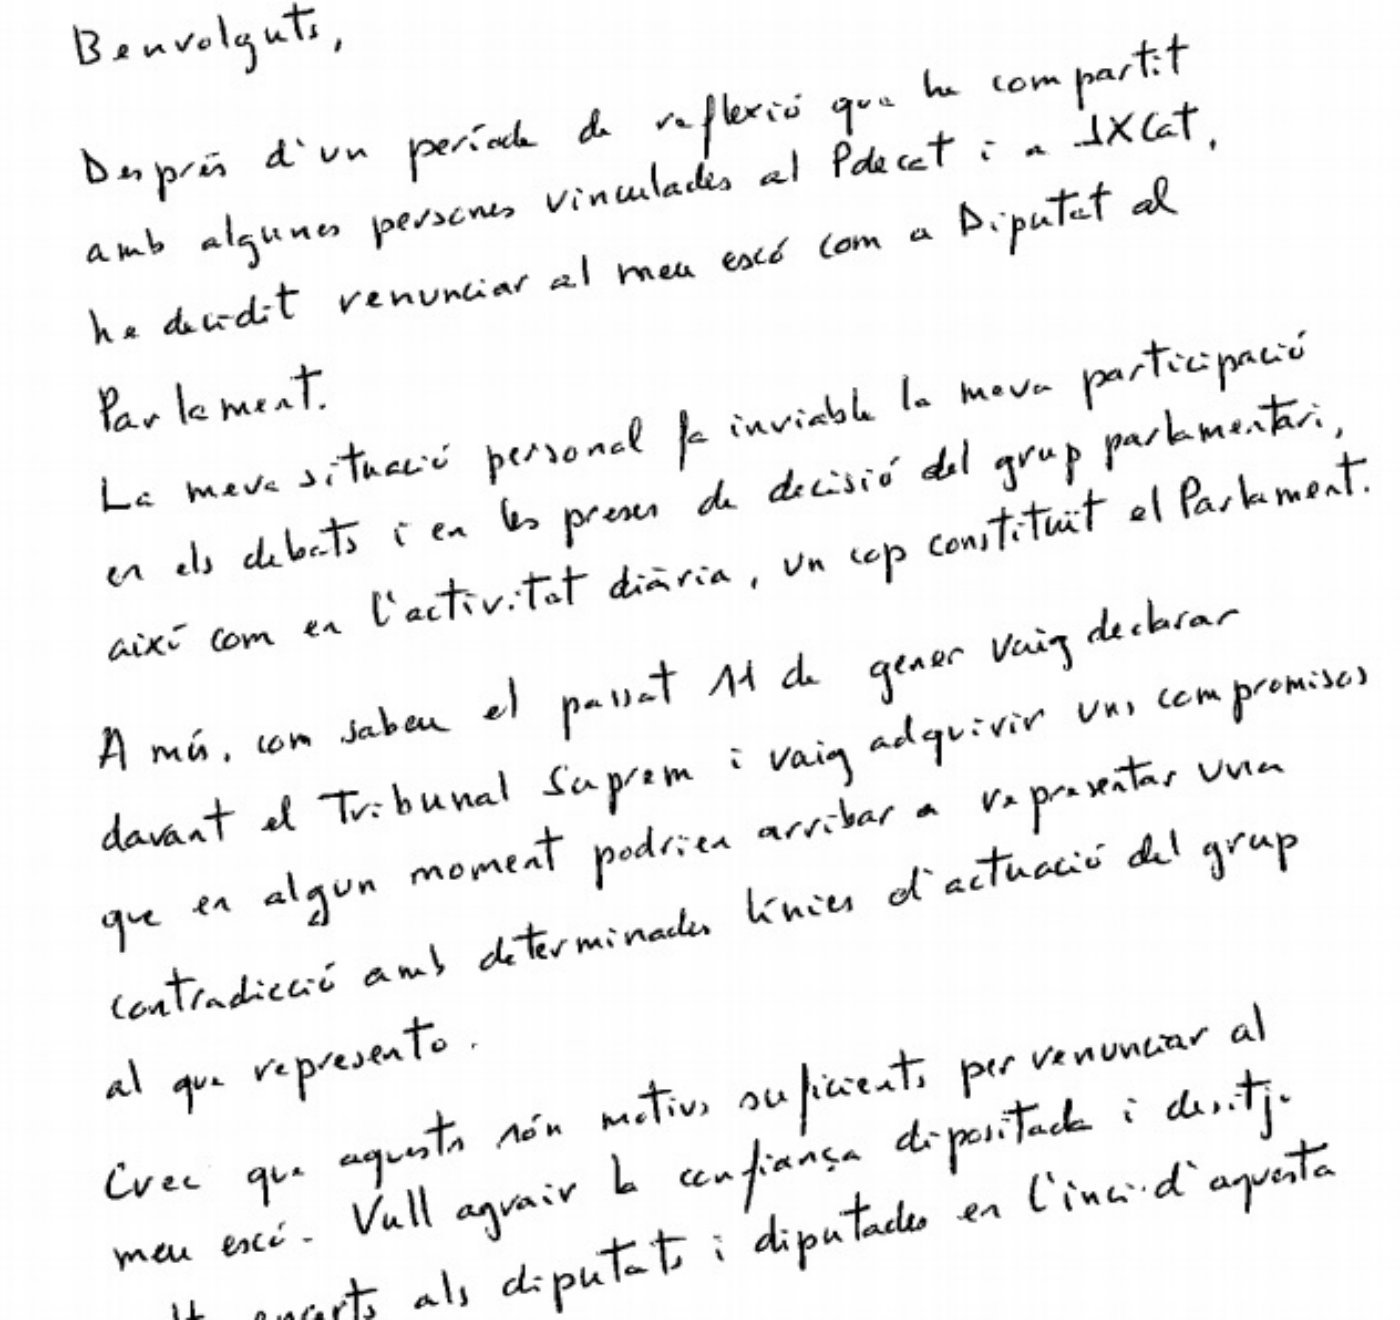 Benvolguts,
Després d'un període de reflexió que he compartit
amb algunes persones vinculades al Pdecat i a JXCat,
he decidit renunciar al meu escó com a Diputat al
Parlament.
La meva situació personal fa inviable la meva participació
en els debats i en les preses de decisió del grup parlamentari,
així com en l'activitat diària, un cop constituït el Parlament.
A més, com sabeu el passat 11 de gener vaig declarar
davant el Tribunal Suprem i vaig adquirir uns compromisos
que en algun moment podrien arribar a representar una
contradicció amb determinades línies d'actuació del grup
al que represento.
Crec que aquests són motius suficients per renunciar al
meu escó. Vull agrair la confiança dipositada i desitjo
encerts als diputats i diputades en l'inici d'aquesta